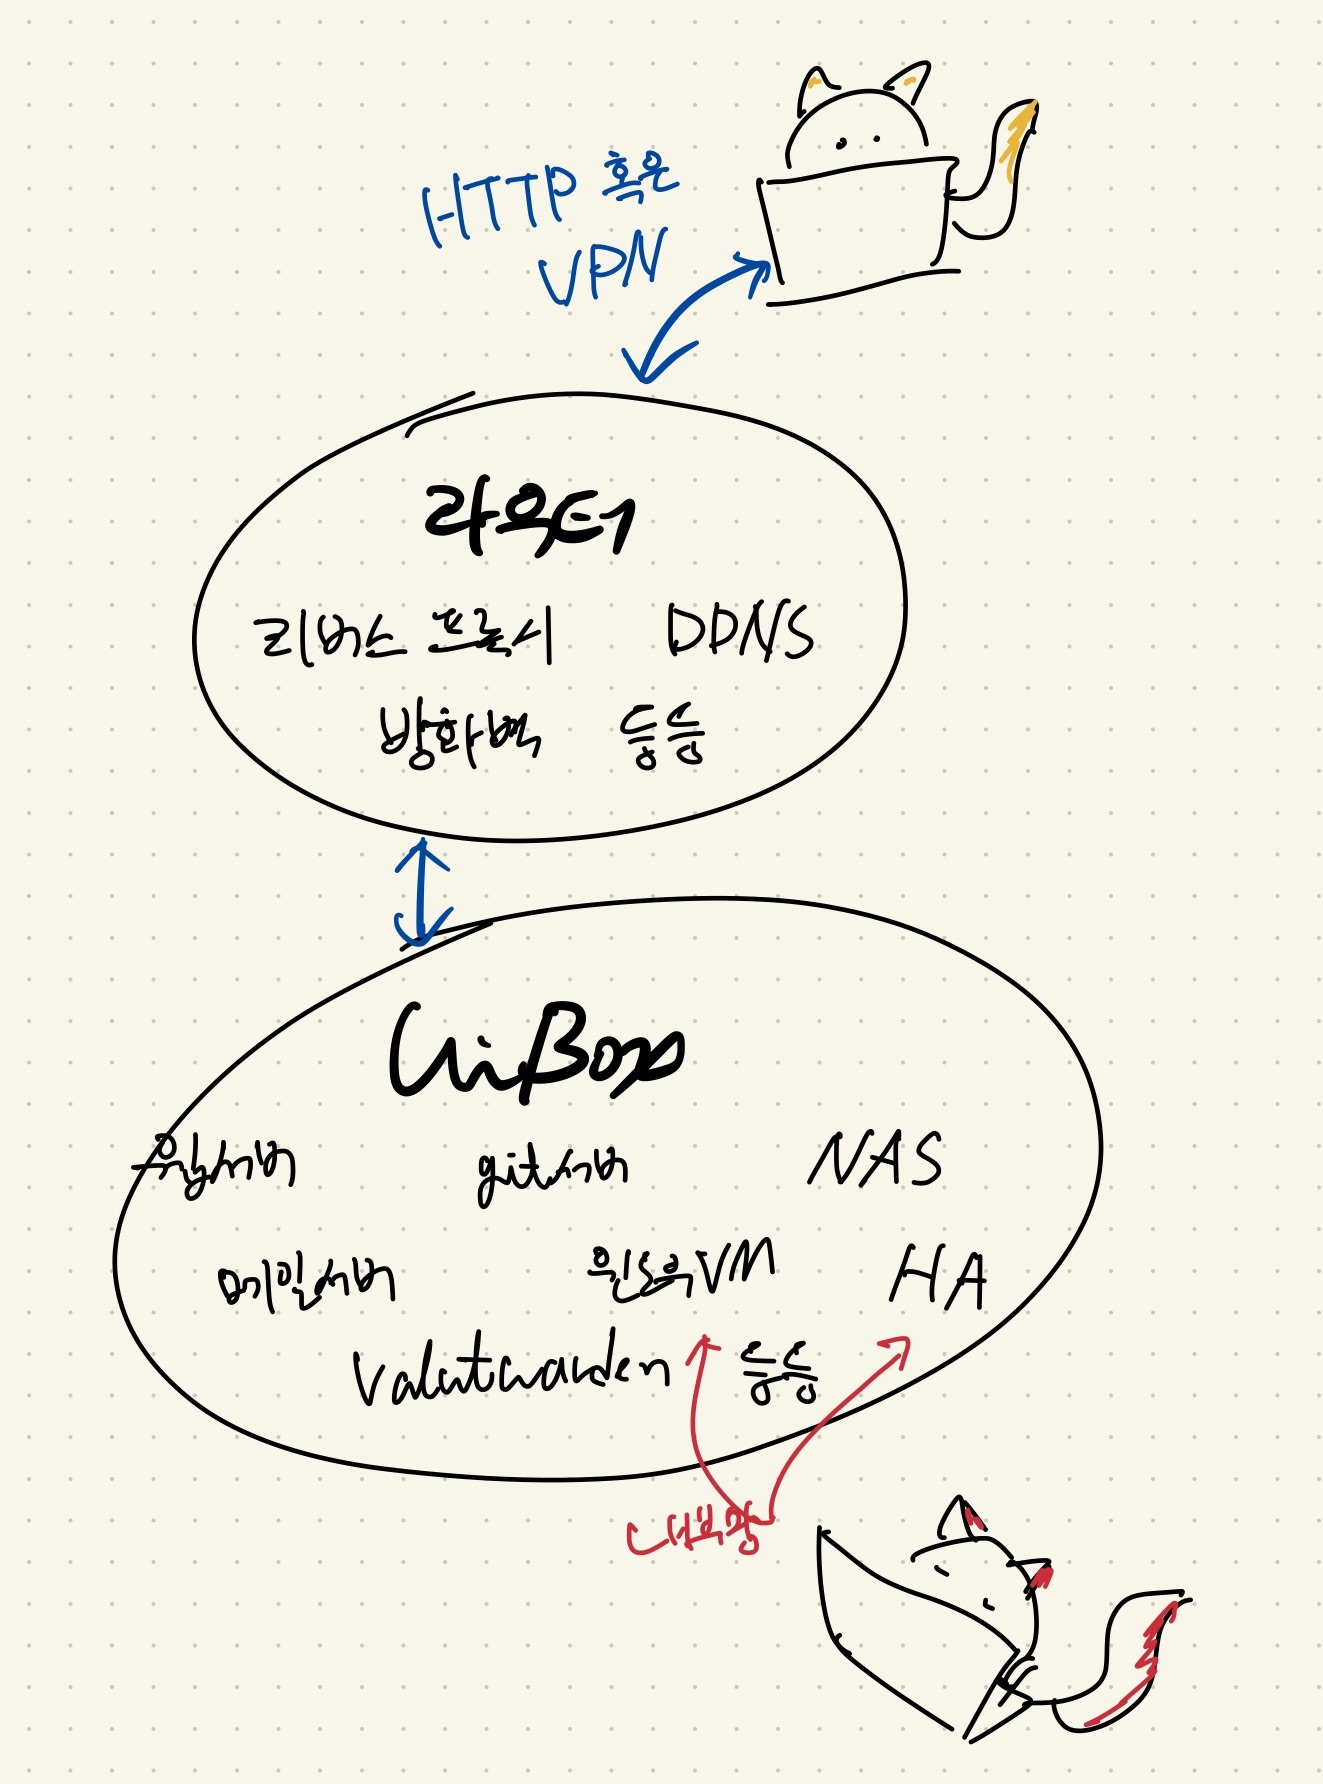 HTTP 혹은
VPN
라우터
리버스 프록시 DDNS
방화벽 등등
UiBox
웹서버 git서버 NAS
메일서버 윈도우VM HA
Valutwarden 등등
내부망